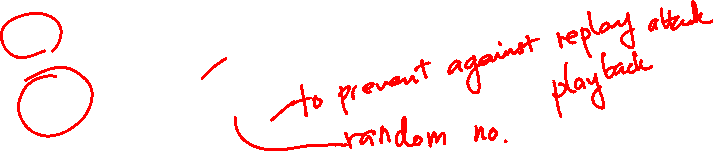 to prevent against replay attack
playback
random no.